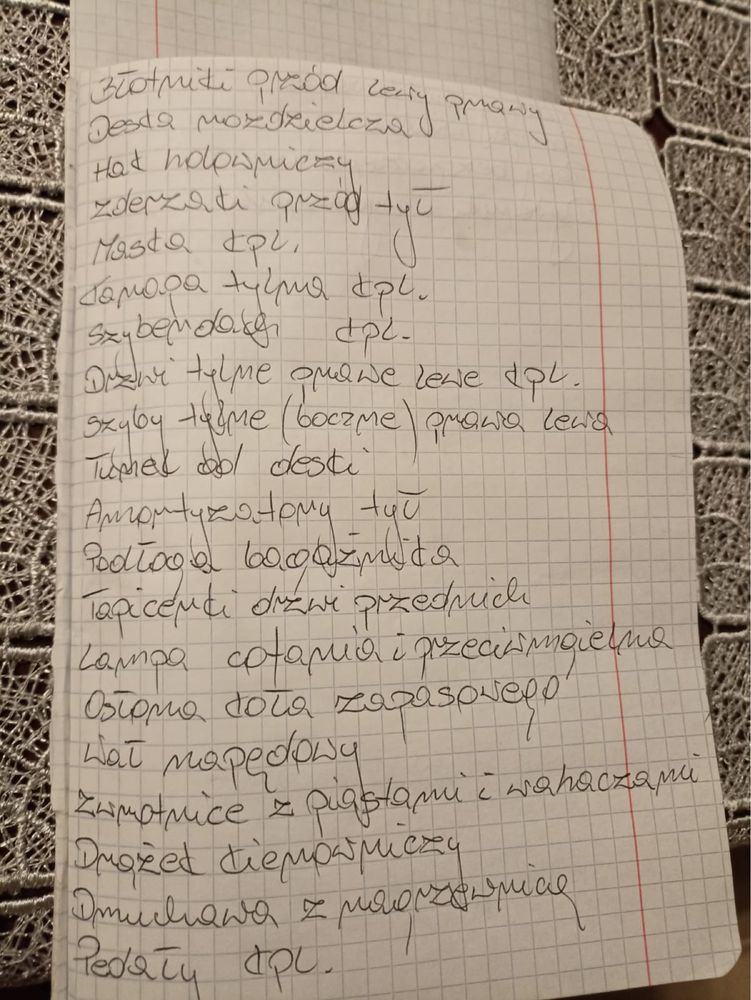 Błotniki przód lewy prawy
Deska rozdzielcza
Hak holowniczy
zderzaki przód tył
Maska kpl.
Kanapa tylna kpl.
szyberdach kpl.
Drzwi tylne prawe lewe kpl.
szyby tylne (boczne) prawa lewa
Tunel od deski
Amortyzatory tył
Podłoga bagażnika
Tapicerki drzwi przednich
Lampa cofania i przeciwmgielna
Osłona koła zapasowego
Wał napędowy
zwrotnice z piastami i wahaczami
Drążek kierowniczy
Dmuchawa z nagrzewnicą
Pedały kpl.